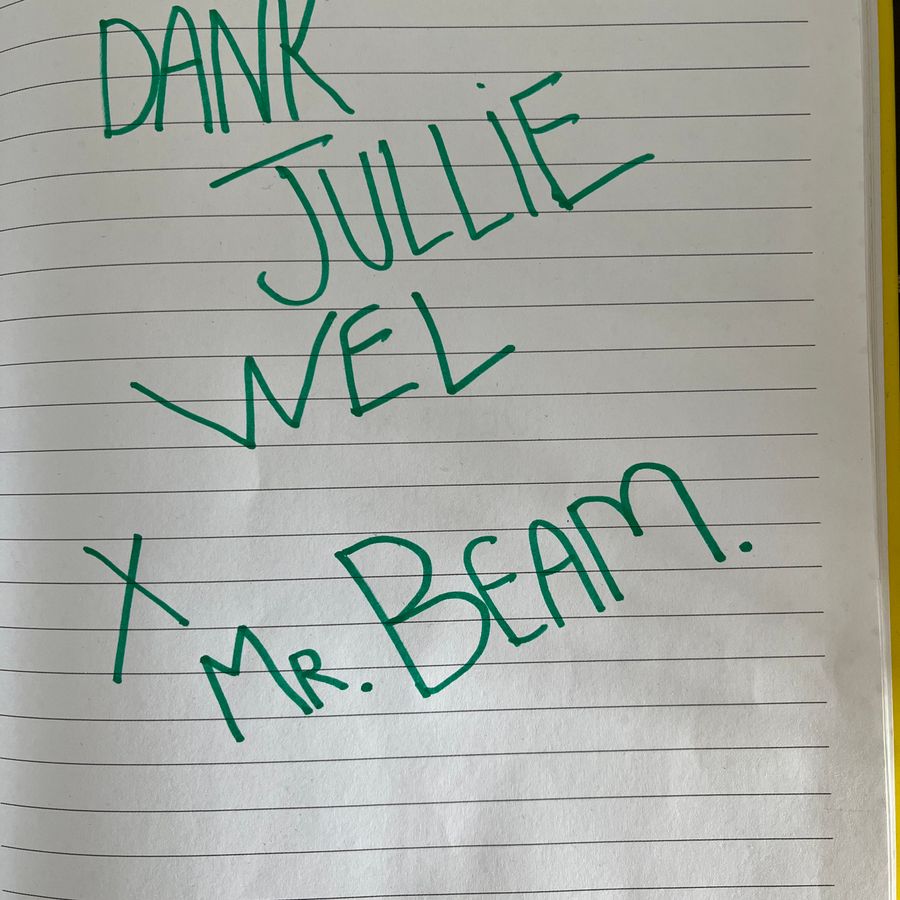 DANK
JULLiE
WEL
X MR. BEAM.